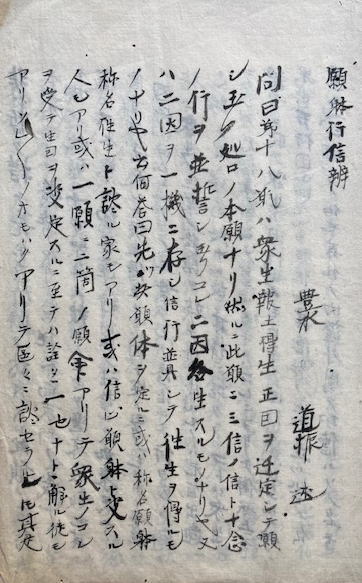 願躰行信辨
豊水 道振 述
問曰第十八願ハ衆生報土得生正因ヲ選定シテ願
シ玉フ処ロノ本願ナリ然ルニ此願ニ三信ノ信ト十念
ノ行ヲ並誓シ玉フコレ二因各生スルモノナリヤ又
ハ二因ヲ一機ニ存シ信行並具シテ往生ヲ得ルモ
ノナリヤ云何答曰先ツ此願体ヲ定ルニ或ハ称名願躰
称名往生ト談ル家モアリ或ハ信心願躰ト定ムル
人モアリ或ハ一願ニ二箇ノ願アリテ衆生ノコレ
ヲ受テ生因ヲ決定スルニ至テハ詮 一也ナト解ル徒モ
アリ各 ノオモハクアリテ区々ニ談セラルヽ 其